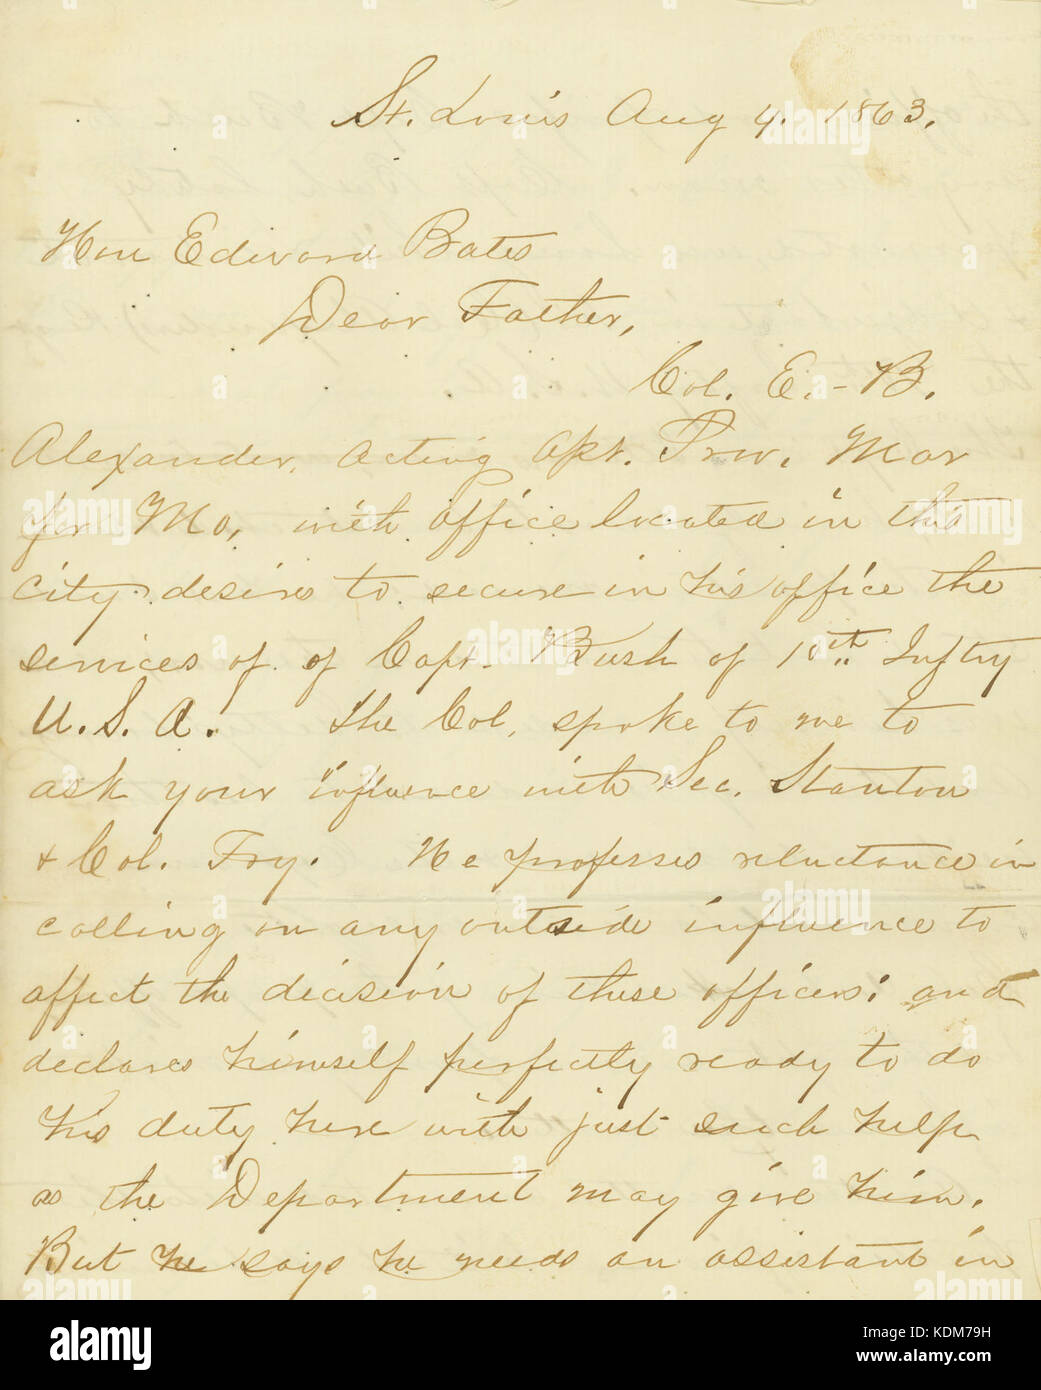 St. Louis Aug 4. 1863.
Hon Edward Bates
Dear Father,
Col. E. - B.
Alexander, acting apt. Prov. Mar
for Mo, with office located in this
city desires to secure in his office the
services of of Capt. Bush of 10th Inftry
U. S. A. The Col, spoke to me to
ask your influence with Sec. Stanton
+ Col. Fry. He professes reluctance in
calling on any outside influence to
affect the dicision of these officers; and
declares himself perfectly ready to do
his duty here with just such help
as the Department may give him.
But he says he needs an assistant in
alamy
Image ID: KDM79H
www.alamy.com